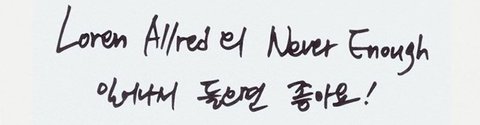 Loren Allred의 Never Enough
일어나서 들으면 좋아요!